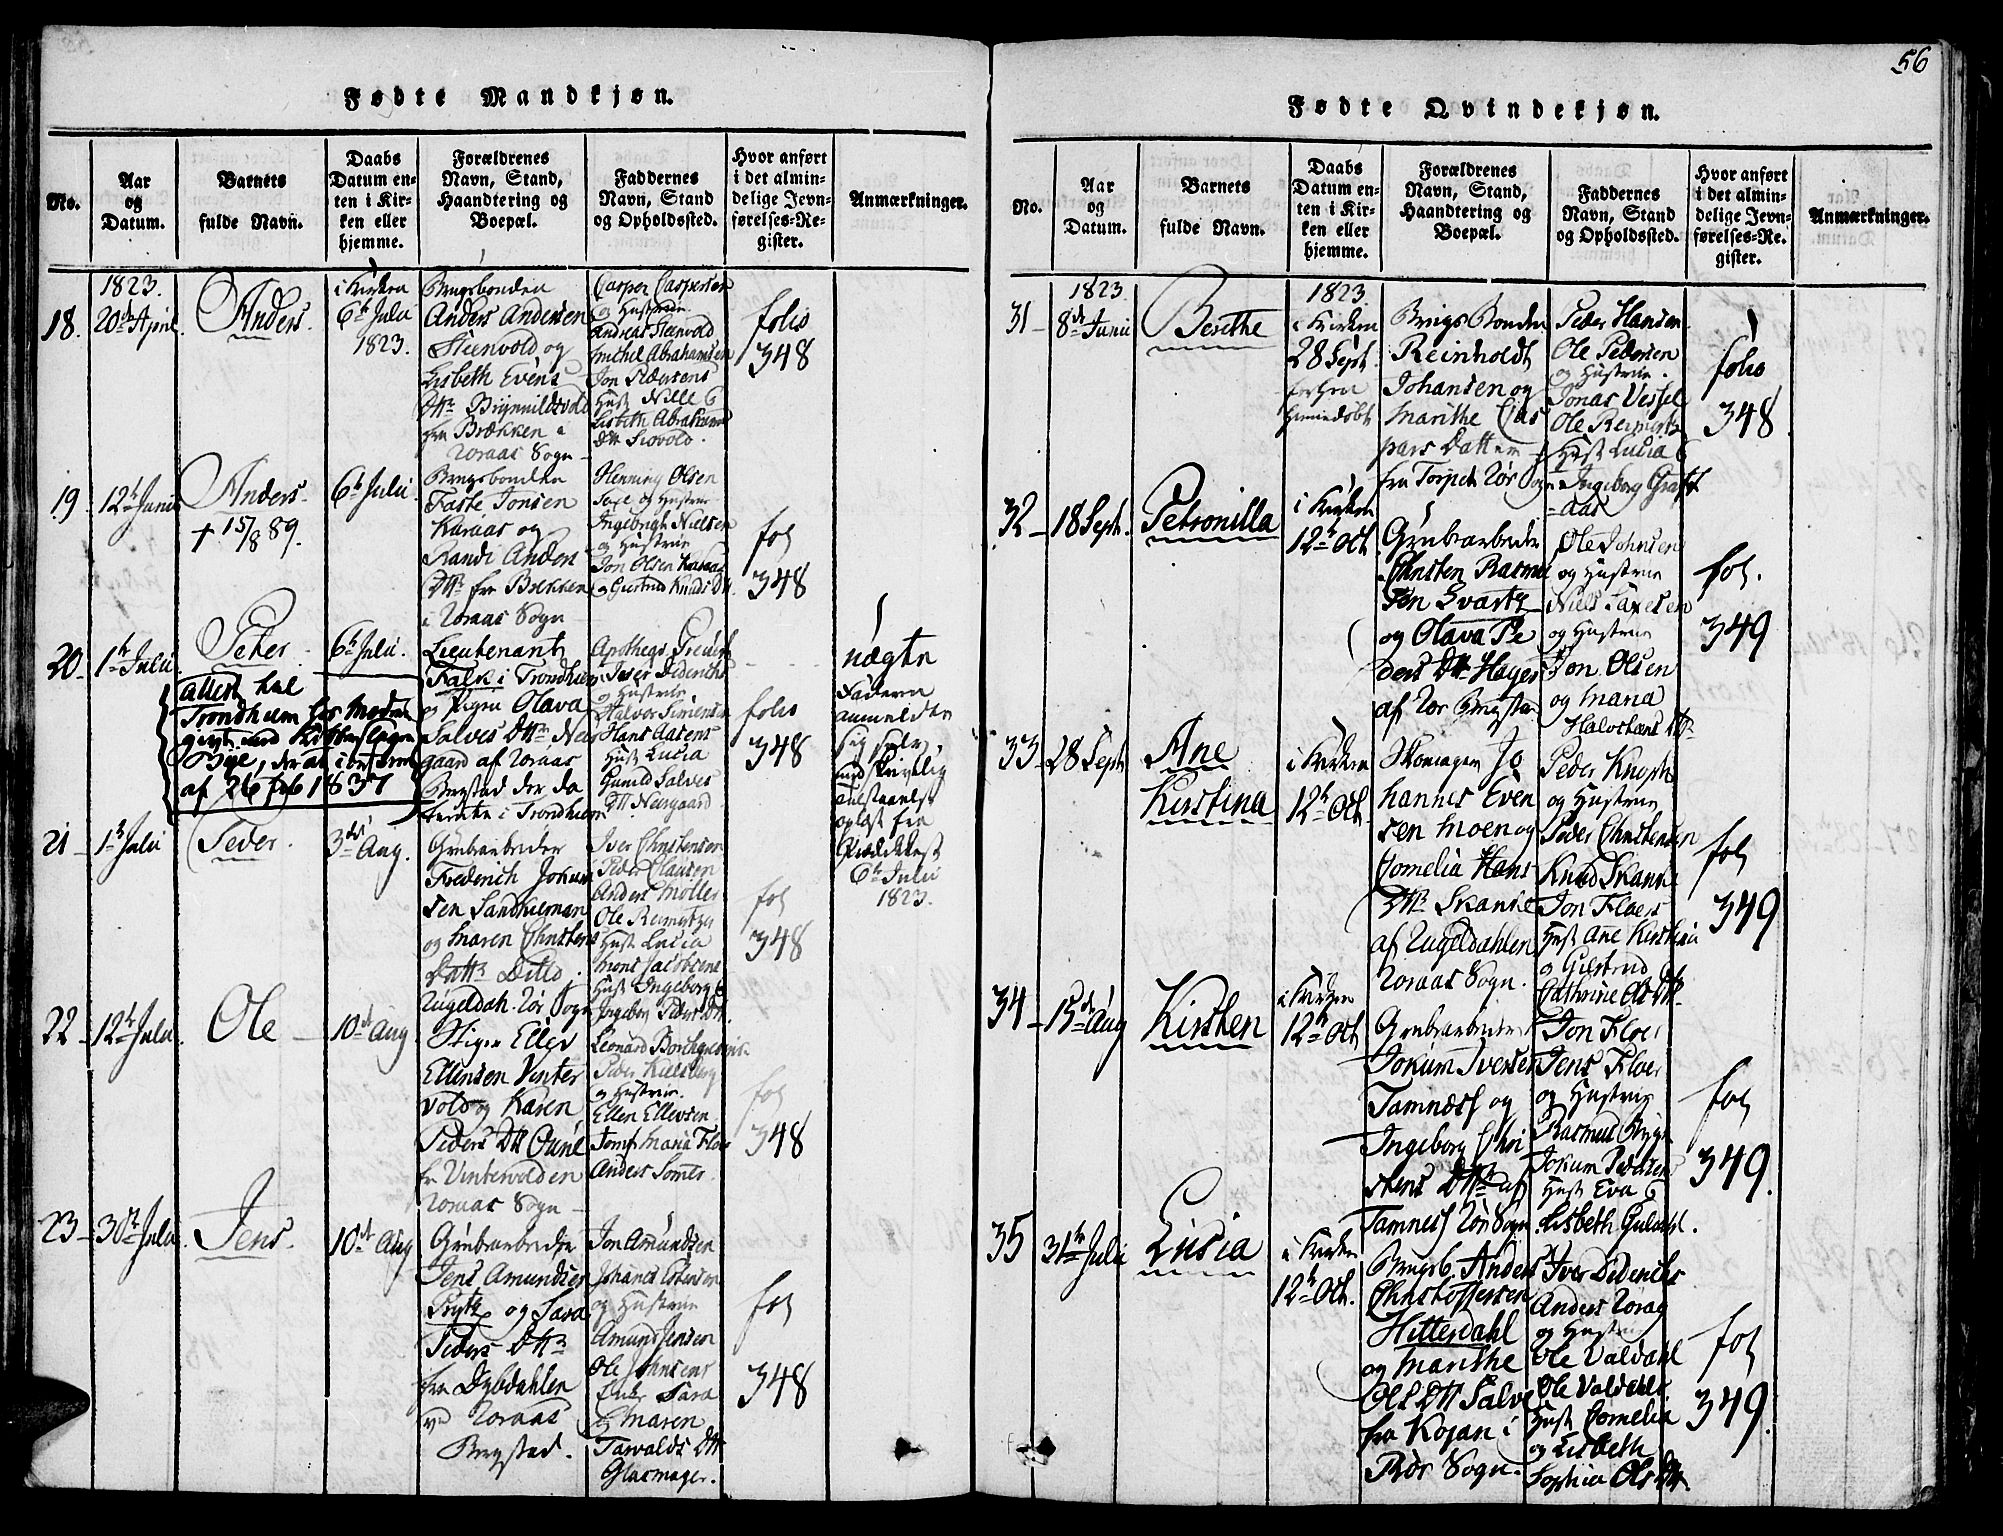 56
Fødte Mandkjøn.
No.
Aar
og
Datum.
Barnets
fulde Navn.
Daabs
Datum en-
ten i Kir-
ken eller
hjemme.
Forældrenes
Navn, Stand,
Haandtering og
Boepæl.
Faddernes
Navn, Stand
og Opholdssted.
Hvor anført
i det almin-
delige Jevn-
førelses-Re-
gister.
Anmærkninger.
18.
1823.
20de April.
Anders.
i Kirken
6te Julii
1823.
Brugsbonden
Anders Andersen
Steenvold og
Lisbeth Evens
Dttr
fra Brækken i
Röraas Sogn
Casper Caspersen
og Hustrue
Andreas Steenvold
Michel Abrahamsen
Jon Pedersens
Hust Nille &
Lisbeth Abrahams
Dtt
folio
348
19.
12te Junii
Anders.
† 15/8 89.
6te Julii
Brugsbonden
Faste Jonsen
Karaas og
Randi Anders
Dttr fra Brekken
i Röraas Sogn
Henning Olsen
og Hustrue
Ingebrigt Nielsen
og Hustrue
Jon Olsen Karaas
og Giertrud Knuds Dtt.
fol
348
20
1te Julii.
Peter.
6te Julii.
Lieutenant
Falk i Trondhiem
og Pigen Olava
Salves Dttr Neer
gaard af Röraas
Bergstad der da
tiente i Trondhiem
Iver Diderichs
og Hustrue
Halvor
Hans Aasens
Hust Lucia
Gunild Salves
Dtt Neergaard
folio
348
af 26 feb 1837
nægte
Faderen
anmelder
sig selv
med skrivelig
6te Julii
1823.
21
1te Julii
Peder.
3die Aug.
Grubearbeider
Frederich Jokum
sen Sandkieman
og Maren Christens
Dattr Ditto.
Rugeldah. Rör Sogn
Iver Christensen
Peder Clausen
Anders Möller
Ole Reimertz
Hust Lucia
Mons Jacobsens
Hust Ingeborg &
Ingebor Peders Dtt.
fol
348
22
12te Julii.
Ole
10de Aug
Stiger Ellev
Ellensen Vinter
vold og Karen
Peders Dtt Aune
fr Vintervolden
Röraas Sogn
Leonard Borchgrevink
Peder Kielsberg
og Hustrue.
Ellen Ellevsen
Jomf Maria Floer
Anders
fol
348
23
30te Julii
Jens.
10de Aug
Grubearbeider
Jens Amundsen
Prytz og Sara
Peders Dttr
fra Dybdahlen
ved Röraas
Bergstad.
Jon Amundsen
Johanes Estensen
og Hustrue
Amund Jensen
Ole Johnsens
Enke Sara
og Maren
Tarvalds Dtt
Glasmager.
fol
348
Fødte Qvindekjøn.
No.
Aar
og
Datum.
Barnets
fulde Navn.
Daabs
Datum en-
ten i Kir-
ken eller
hjemme.
Forældrenes
Navn, Stand,
Haandtering og
Boepæl.
Faddernes
Navn, Stand
og Opholdssted.
Hvor anført
i det almin-
delige Jevn-
førelses-Re-
gister.
Anmærkninger.
31
1823.
8de Junii
Berithe
1823.
i Kirken
28 Sept.
Brugs Bonden
Reinholdt
Johansen og
Marithe Cas
pars Datter
Peder Hansen
Ole Pedersen
og Hustrue.
Jonas Vessel
Ole Reimertz
Hust Lucia &
Ingeborg Graft
aas
folio
348
32
18 Sept.
Petronilla
i Kirken
12te Oct
Grubearbeider
Christen Rasmu
sen Svartz
og Olava Pe
ders Dttr Høyer
af Rör Bergstad
Ole Johnsen
og Hustrue
Niels Saxesen
og Hustrue
Jon Olsen
og Maria
Halvorsens Dttr
fol.
349
33
28 Sept.
Ane
Kirstina
i Kirken
12te Oct.
Skomager Jo
hannes Even
sen Moen og
Cornelia Hans
Dttr Skanke
af Rugeldahlen
Röraas Sogn.
Peder Knoph
og Hustrue
Peder Christensen
Knud Skanke
Jon Floers
Hust Ane Kirstina
og Giertrud
Cathrine Ols Dtt.
fol
349
34
15de Aug
Kirsten
i Kirken
12te Oct
Grubearbeider
Jokum Iversen
Tamness og
Ingeborg Chri
stens Dttr af
Tamness Rör Sogn
Jon Floer
Jens Floer
og Hustrue
Rasmus Bryge
Jokum Pedersens
Hust Eva &
Lisbeth Guldahl.
fol
349.
35
31te Julii
Lucia
i Kirken
12te Oct.
Brugsb. Anders
Christoffersen
Hitterdahl
og Marithe
Ols Dtt Salve
fra Kojan i
Rör Sogn.
Iver Diderichs
Anders Rörag
og Hustrue
Ole Valdahl
Ole Valdahls
Hust Cornelia
og Lisbeth
Sophia Ols Dtt.
fol
349.